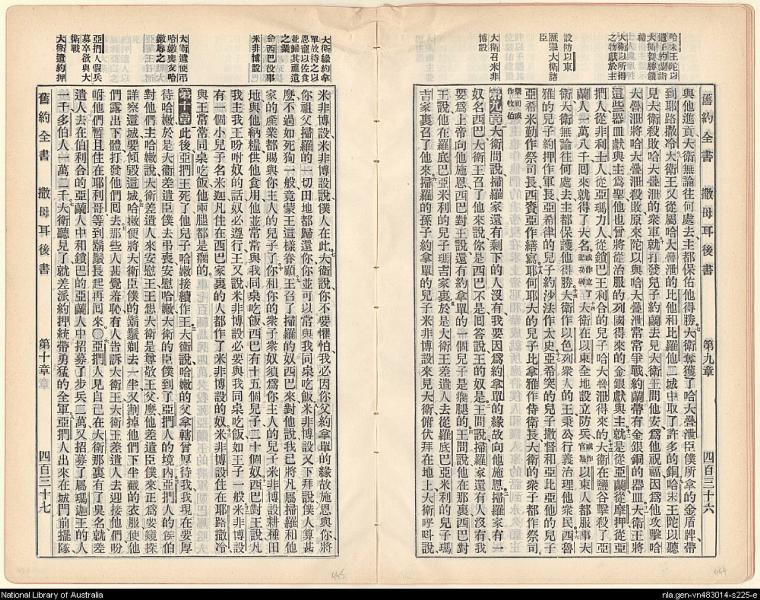 舊約全書 撒母耳後書 第九章 四百三十六
與他進貢大衛無論往何處去主都保佑他得勝大衛奪獲了哈大薔洩臣僕所拿的金盾牌帶
到耶路撒冷大衛王又從屬哈大薔洩的比他和比羅他二城中取了許多的銅哈末王陀以聽
見大衛殺敗哈大薔洩的眾軍就打發兒子約蘭去見大衛王問他安爲他祝福因爲他攻擊哈
大薔洩將哈大薔洩殺敗原來陀以與哈大薔洩常常爭戰約蘭帶有金銀銅的器皿大衛王將
這些器皿獻與主爲聖他也曾將從治服的列國得來的金銀獻與主就是從亞蘭從摩押從亞
捫人從非利士人從亞瑪力人從鎖巴王利合的兒子哈大薔洩得來的大衛在鹽谷擊殺了亞
蘭人一萬八千回來就得了大名大衛在以東全地設立防兵以東人都服事大
衛大衛無論往何處去主都保護他得勝大衛作以色列眾人的王秉公行義治理他眾民西魯
雅的兒子約押作軍長亞希律的兒子約沙法作太史亞希突的兒子撒督和亞比他的兒子
亞希米勒作祭司長西賽亞作繕寫耶何耶大的兒子比拿雅作侍衛長大衛的眾子都作祭司
第九章 大衛問說掃羅家還有剩下的人沒有我要因爲約拿單的緣故向他施恩掃羅家有一
奴名西巴大衛王召了他來說你是西巴不是回答說王的奴是王問說掃羅家還有人沒有我
要爲上帝向他施恩西巴對王說還有約拿單的一個兒子是瘸腿的王問說他在那裏西巴對
王說他在羅底巴亞米利的兒子瑪吉家裏於是大衛王差遣人去從羅底巴亞米利的兒子瑪
吉家裏召了他來掃羅的孫子約拿單的兒子米非博設來見大衛俯伏拜在地上大衛呼叫說
米非博設說僕人在此大衛說你不要懼怕我必因你父約拿單的緣故施恩與你將
你祖父掃羅的一切田地都歸還你你並可以常與我同桌吃飯米非博設又下拜說僕人算甚
麼不過如死狗一般竟蒙王這樣眷顧王召了掃羅的奴西巴來對他說我已將凡屬掃羅和他
家的產業都賜與你主人的兒子了你和你的眾子眾奴須爲你主人的兒子米非博設耕種田
地與他納糧供他食用他並常常與我同桌吃飯西巴有十五個兒子二十個奴西巴對王說凡
我主我王吩咐奴的話奴必遵行王又說米非博設必要與我同桌吃飯如王子一般米非博設
有一個小兒子名米迦凡住在西巴家裏的人都作了米非博設的奴米非博設住在耶路撒冷
與王常常同桌吃飯他兩腿都是瘸的
第十章 此後亞捫王死了他兒子哈嫩接續作王大衛說哈嫩的父拿轄曾厚待我我現在要厚
待哈嫩於是大衛差遣臣僕去弔喪安慰哈嫩大衛的臣僕到了亞捫人的境內亞捫人的侯伯
對他們主哈嫩說大衛差遣人來安慰王王想大衛是尊敬王父麼他差遣臣僕來正爲要窺探
詳察這城要傾毀這城哈嫩便將大衛臣僕的鬍鬚剃去一半又割掉他們下半截的衣服使他
們露出下體打發他們回去那些人甚覺羞恥有人告訴大衛王大衛王差遣人去迎接他們吩
咐他們暫且住在耶利哥等到鬍鬚長起再回來亞捫人見自己在大衛那裏有了臭名就差
遣人去在伯利合的亞蘭人中和鎖巴的亞蘭人中招募了步兵二萬又招募了屬瑪迦王的人
一千多伯人一萬二千大衛聽見了就差派約押統帶勇猛的全軍亞捫人出來在城門前擺隊
舊約全書 撒母耳後書 第十章 四百三十七
National Library of Australia
nla.gen-vn483014-s225-e